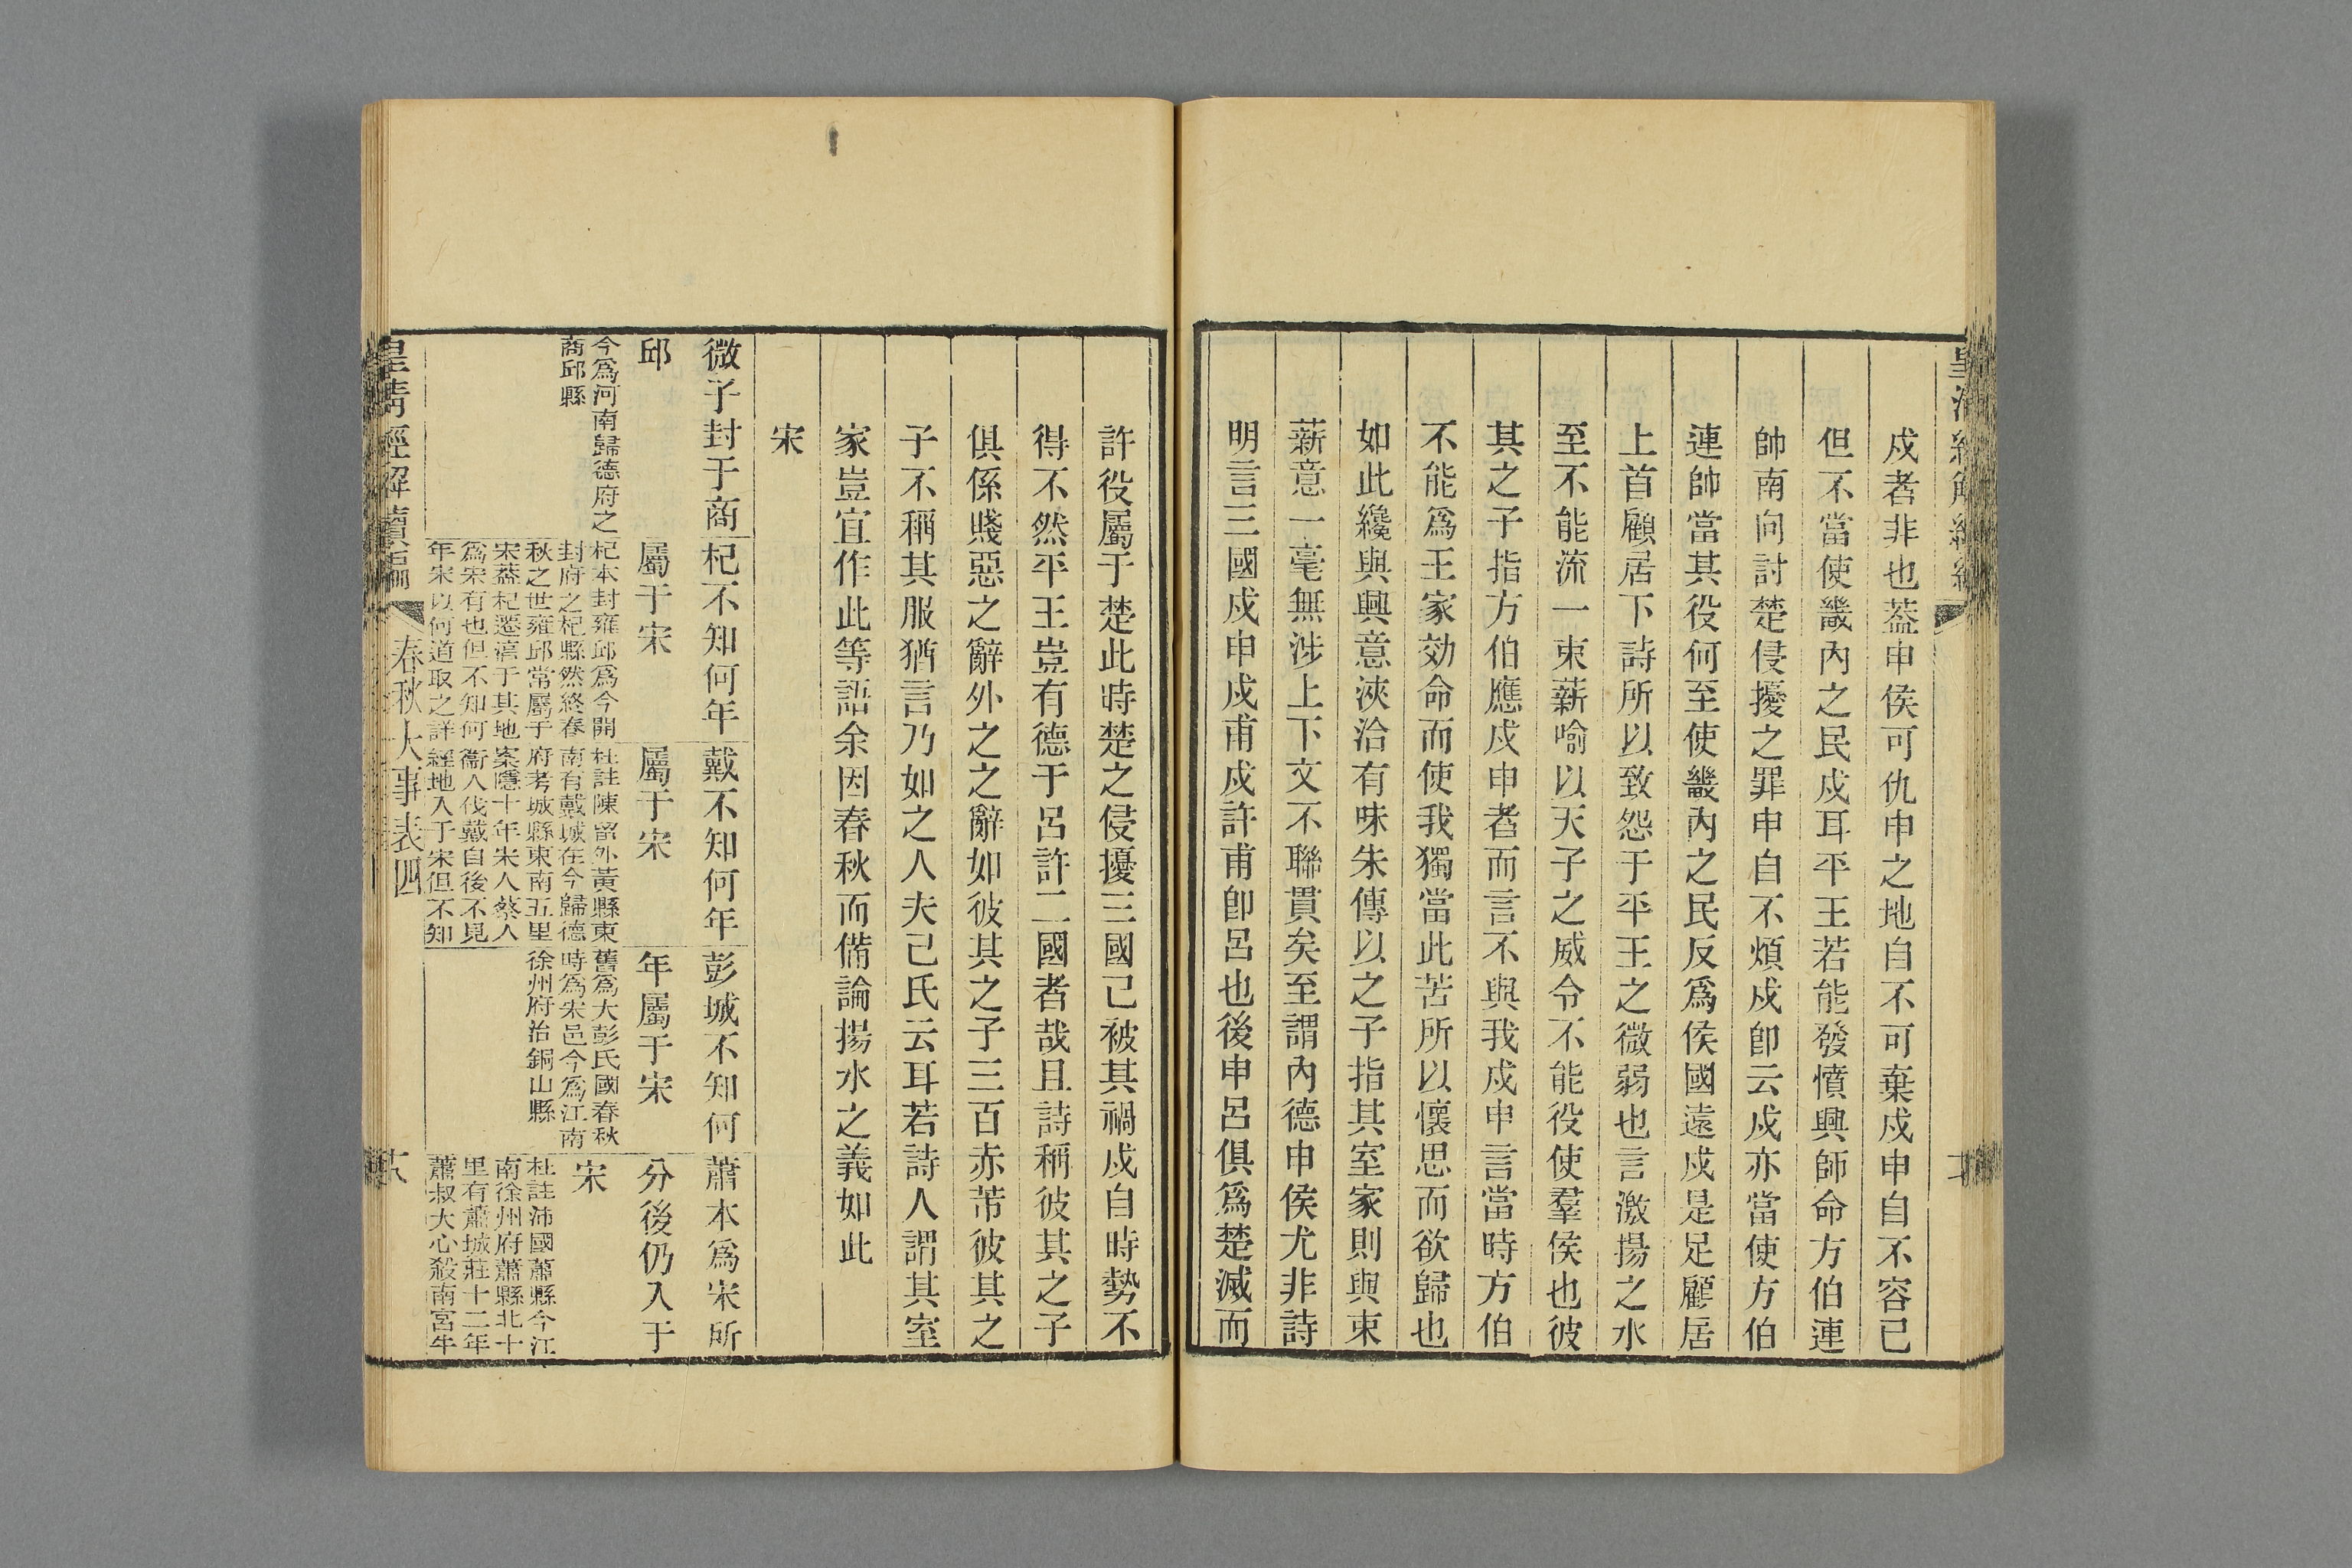 戍者非也葢申侯可仇申之地自不可棄戍申自不容已
但不當使畿內之民戍耳平王若能發憤興師命方伯連
帥南向討楚侵擾之罪申自不煩戍卽云戍亦當使方伯
連帥當其役何至使畿內之民反爲侯國遠戍是足顧居
上首顧居下詩所以致怨于平王之微弱也言激揚之水
至不能流一束薪喻以天子之威令不能役使羣侯也彼
其之子指方伯應戍申者而言不與我戍申言當時方伯
不能爲王家効命而使我獨當此苦所以懷思而欲歸也
如此纔與興意浹洽有味朱傳以之子指其室家則與束
薪意一毫無涉上下文不聯貫矣至謂內德申侯尤非詩
明言三國戍申戍甫戍許甫卽呂也後申呂俱爲楚滅而
許役屬于楚此時楚之侵擾三國已被其禍戍自時勢不
得不然平王豈有德于呂許二國者哉且詩稱彼其之子
俱係賤惡之辭外之之辭如彼其之子三百赤芾彼其之
子不稱其服猶言乃如之人夫己氏云耳若詩人謂其室
家豈宜作此等語余因春秋而備論揚水之義如此
宋
微子封于商
邱
今爲河南歸德府之
商邱縣
杞不知何年
屬于宋
杞本封雍邱爲今開
封府之杞縣然終春
秋之世雍邱常屬于
宋葢杞遷淳于其地
爲宋有也但不知何
年宋以何道取之詳
戴不知何年
屬于宋
杜註陳留外黃縣東
南有戴城在今歸德
府考城縣東南五里
案隱十年宋人蔡人
衞人伐戴自後不見
經地入于宋但不知
彭城不知何
年屬于宋
舊爲大彭氏國春秋
時爲宋邑今爲江南
徐州府治銅山縣
蕭本爲宋所
分後仍入于
宋
杜註沛國蕭縣今江
南徐州府蕭縣北十
里有蕭城莊十二年
蕭叔大心殺南宮牛
皇淸經解續編
春秋大事表四